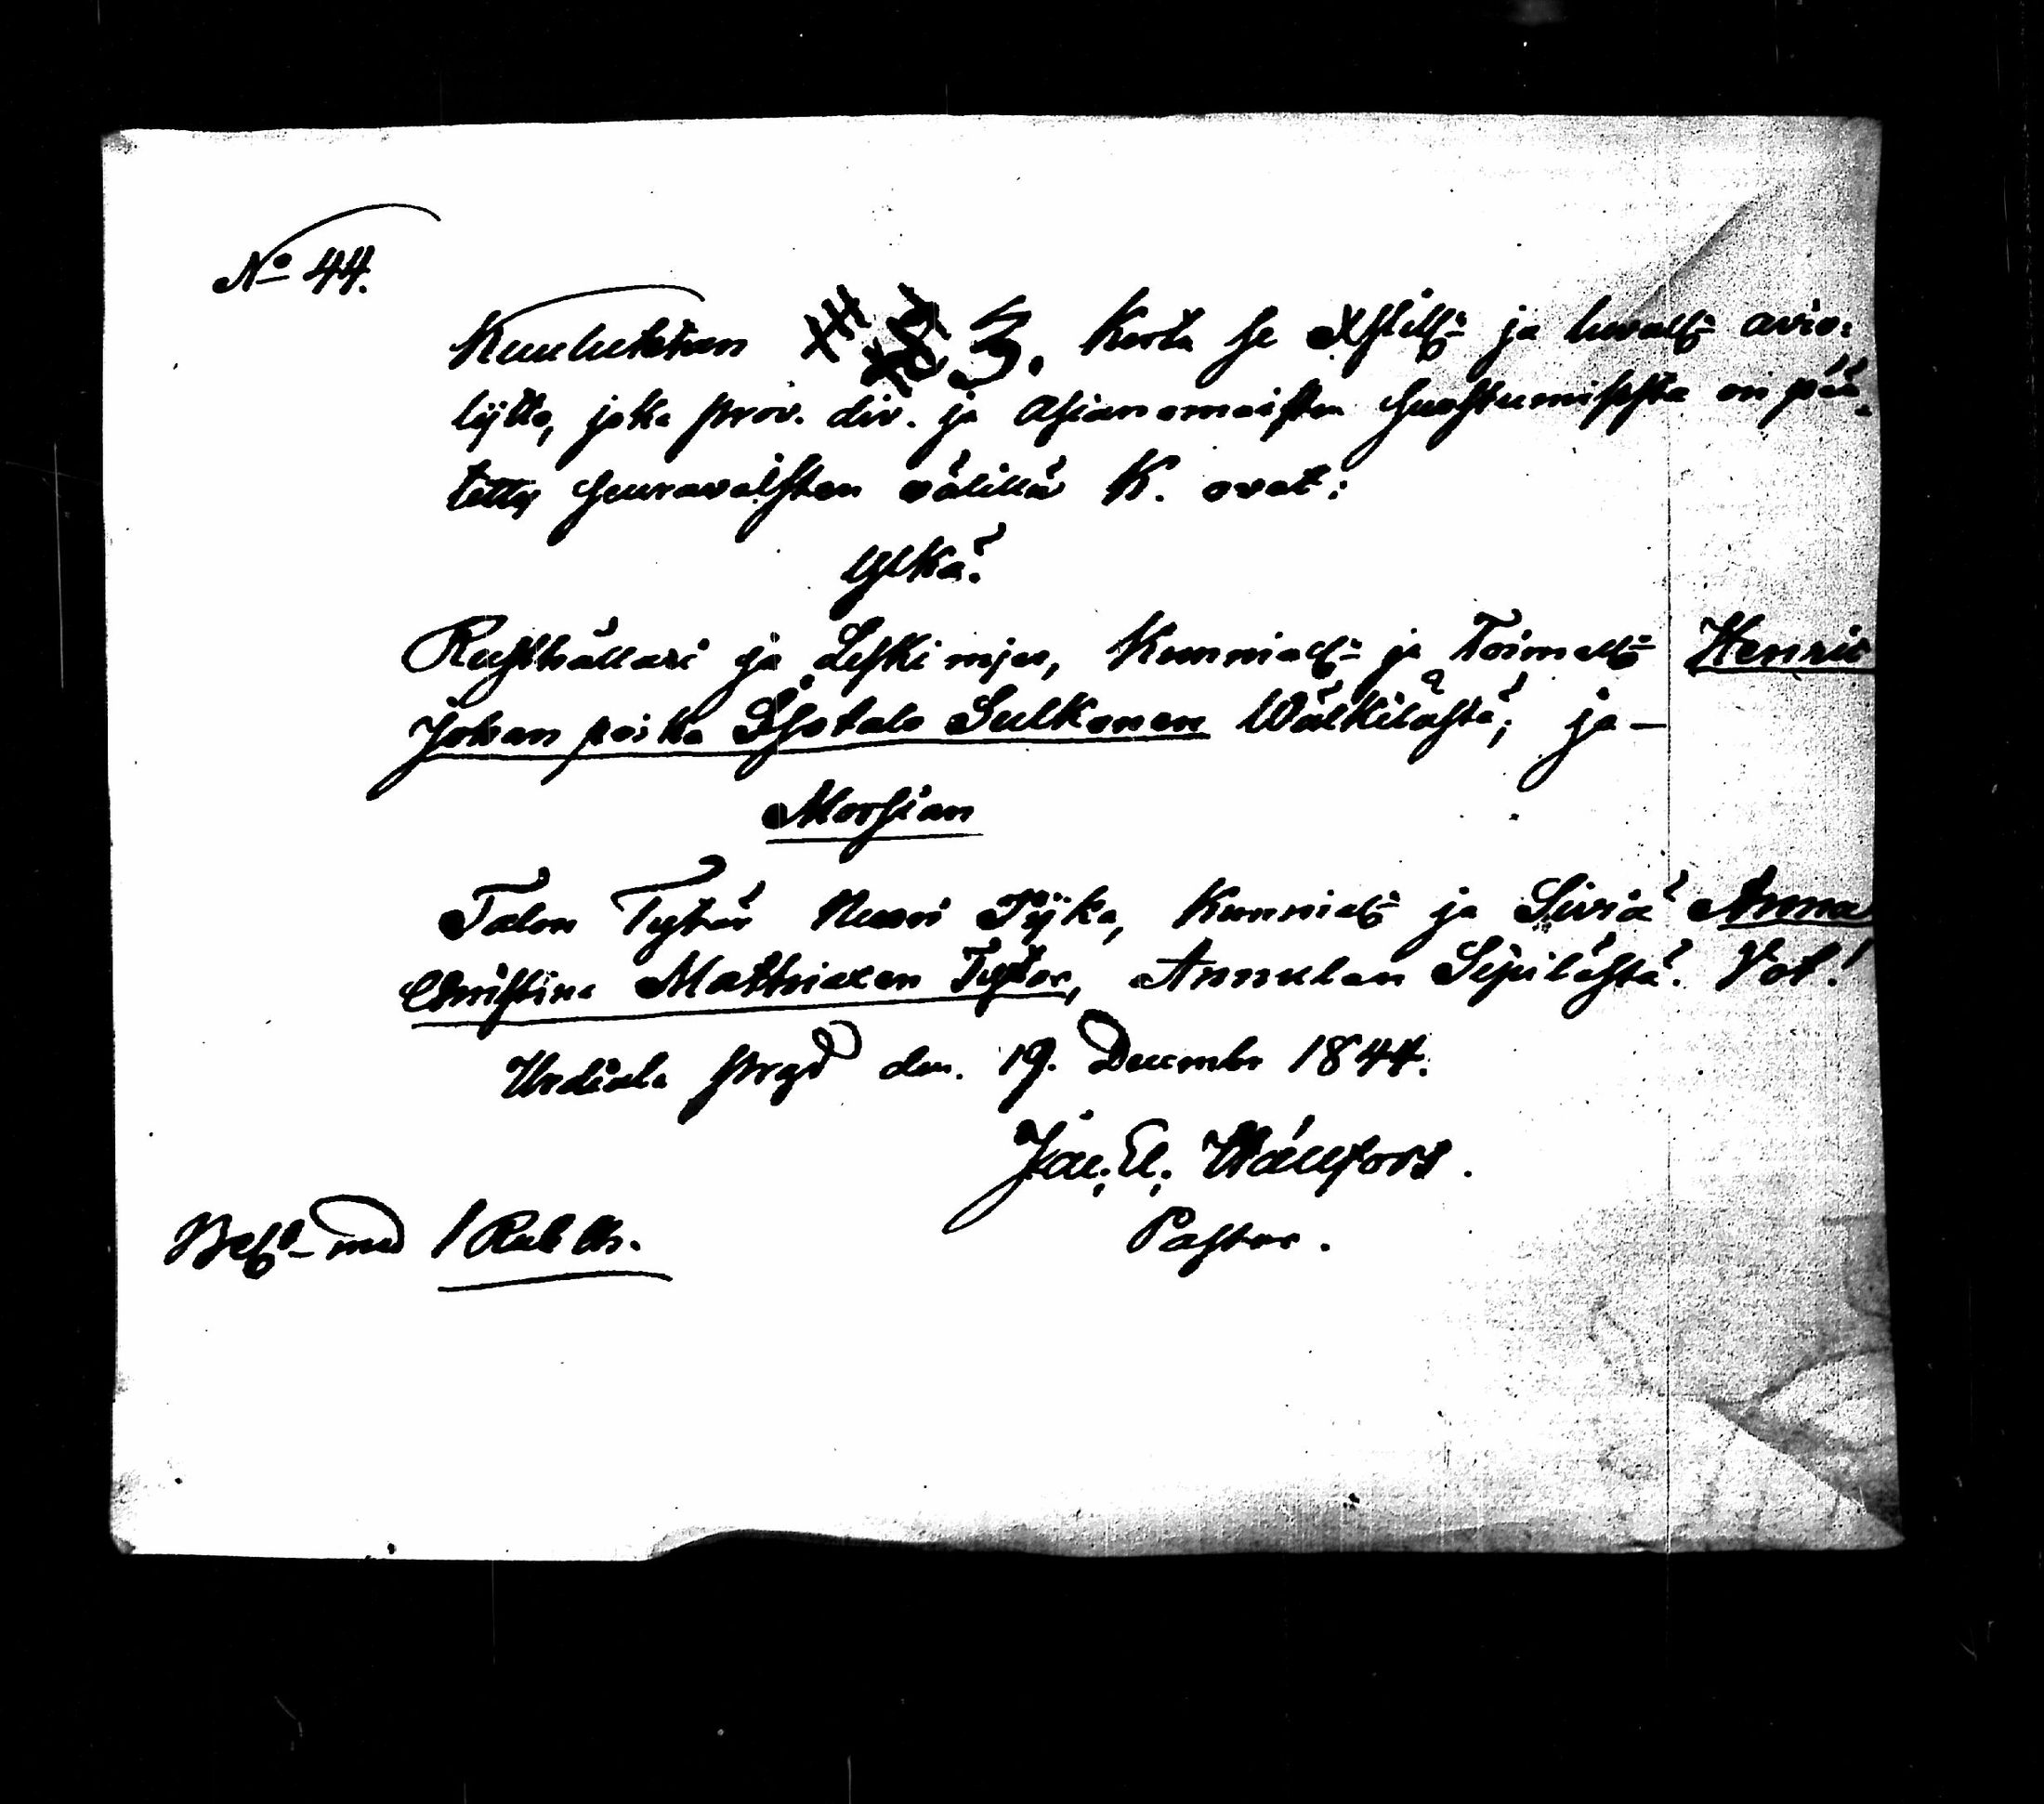 No 44.
Kuulutetan 3. Kerta se Xstill:n ja luvall:n avio-
lijtto, joka prov. div. ja Asianomaisten suostumisesta on pää-
tetty seuravaisten välillä K. ovat:
Ylkä:
Rusthållari ja Leskimjes, Kunniall:n ja Toimell:n Henric
Johan poika Isotalo Sulkonen Wälkiläst:ä; ja —
Morsian
Talon Tytär Neuvi Pijka, Kunniall:n ja Siviä Anna
Christina Matthiaxen Tytär, Annulan Sipilästä. Vot!
Urdiala prgd den 19. Decembr 1844.
Jac. El. Wállfors.
Pastor.
med 1 Rub